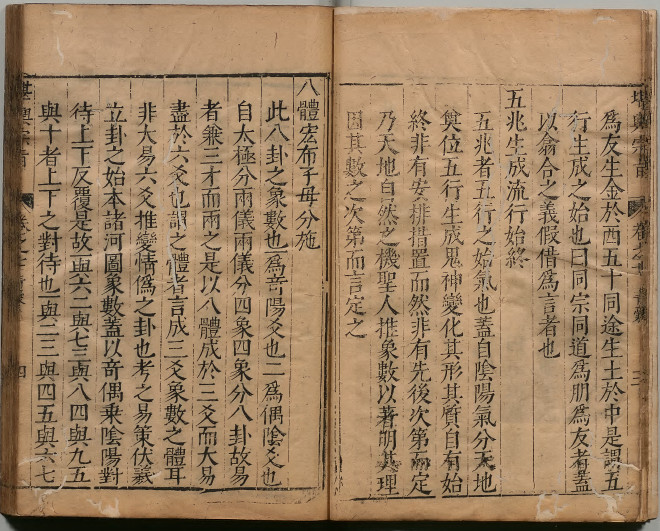 爲友生金於西五十同途生土於中是謂五
行生成之始也曰同宗同道爲朋爲友者蓋
以龠合之義假借爲言者也
五兆生成流行始終
五兆者五行之始氣也蓋自陰陽氣分天地
奠位五行生成鬼神變化其形其質自有始
終非有安排措置而然非有先後次第而定
乃天地自然之機聖人推象數以著明其理
因其數之次第而言定之
八體宏布子母分施
此八卦之象數也一爲竒陽爻也二爲偶陰爻也
自太極分兩儀兩儀分四象四象分八卦故易
者兼三才而兩之是以八體成於三爻而大易
盡於六爻也謂之體者言成三爻象數之體耳
非大易六爻推變情僞之卦也考之易策伏羲
立卦之始本諸河圖象數蓋以竒偶乘陰陽對
待上下反覆是故一與六二與七三與八四與九五
與十者上下之對待也一與二三與四五與六七
堪輿宗旨
四